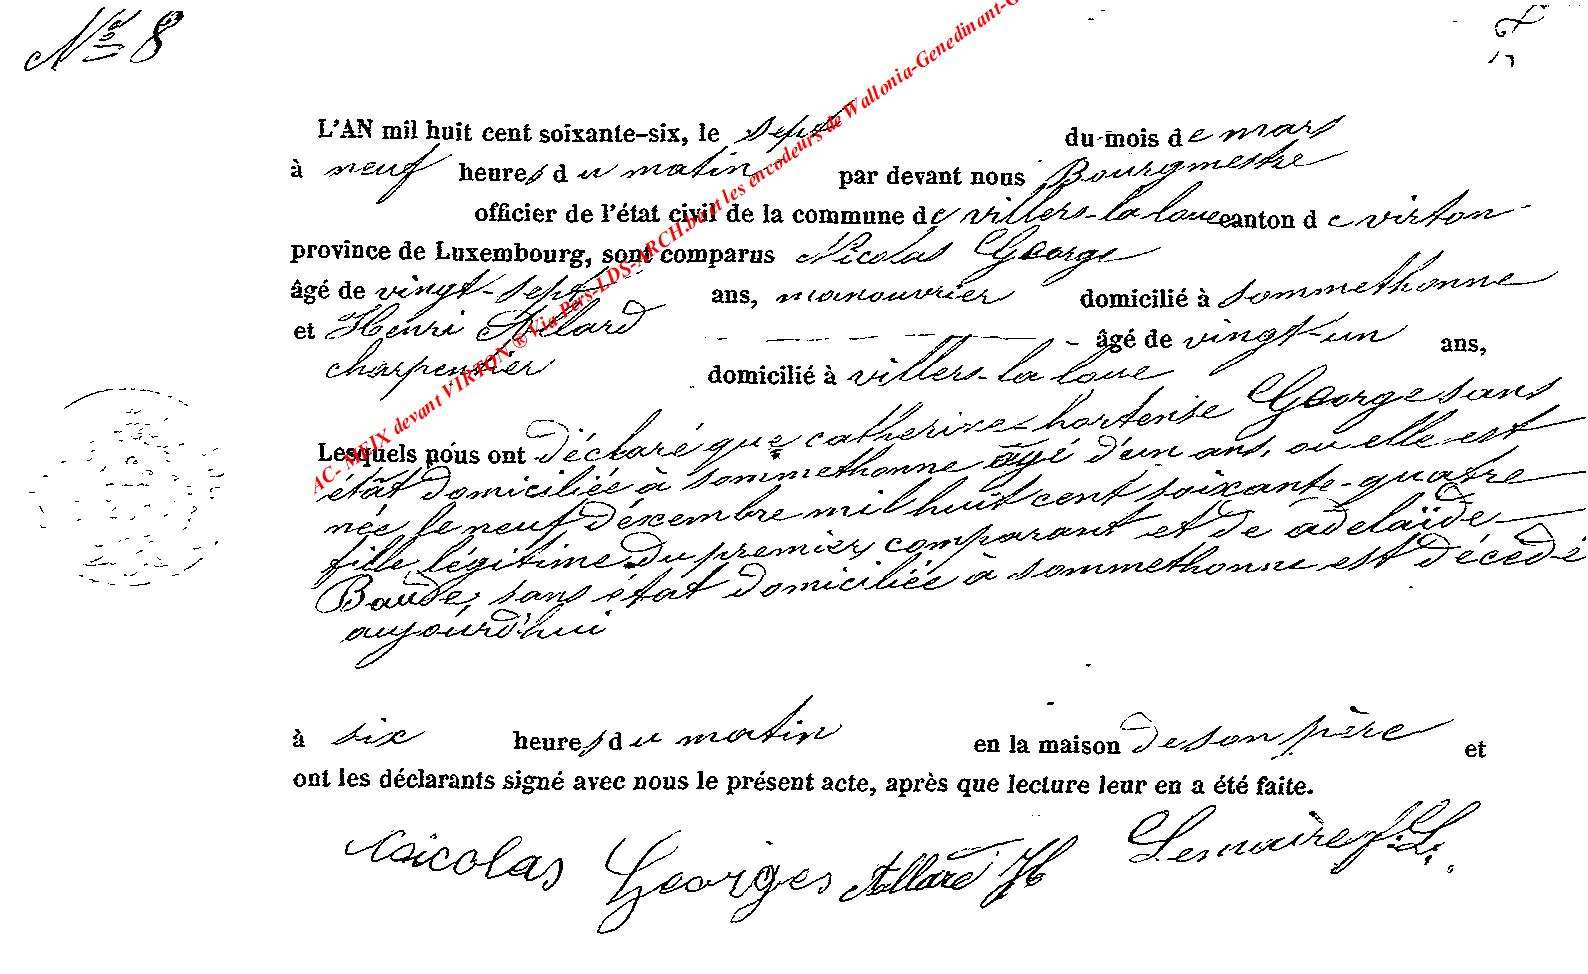 N° 8
L'AN mil huit cent soixante-six, le sept du mois de mars
à neuf heures du matin par devant nous Bourgmestre
officier de l'état civil de la commune de villers-la loue canton de virton
province de Luxembourg, sont comparus Nicolas George
âgé de vingt-sept ans, manouvrier domicilié à sommethonne
et Henri Allard âgé de vingt-un ans,
charpentier domicilié à villers-la loue
Lesquels nous ont déclaré que catherine-hortense George sans
état domiciliée à sommethonne agé d'un ans, ou elle est
née le neuf décembre mil huit cent soixante-quatre
fille légitime du premier comparant et de adelaïde
Baude, sans état domiciliée à sommethonne est décédé
aujourd'hui
à six heures du matin en la maison de son père et
ont les déclarants signé avec nous le présent acte, après que lecture leur en a été faite.
Nicolas Georges Allard H Lemaire f. L.
AC- MEIX devant VIRTON ® Via Pers-LDS-ARCH.be et les encodeurs de Wallonia-Genedinant-G